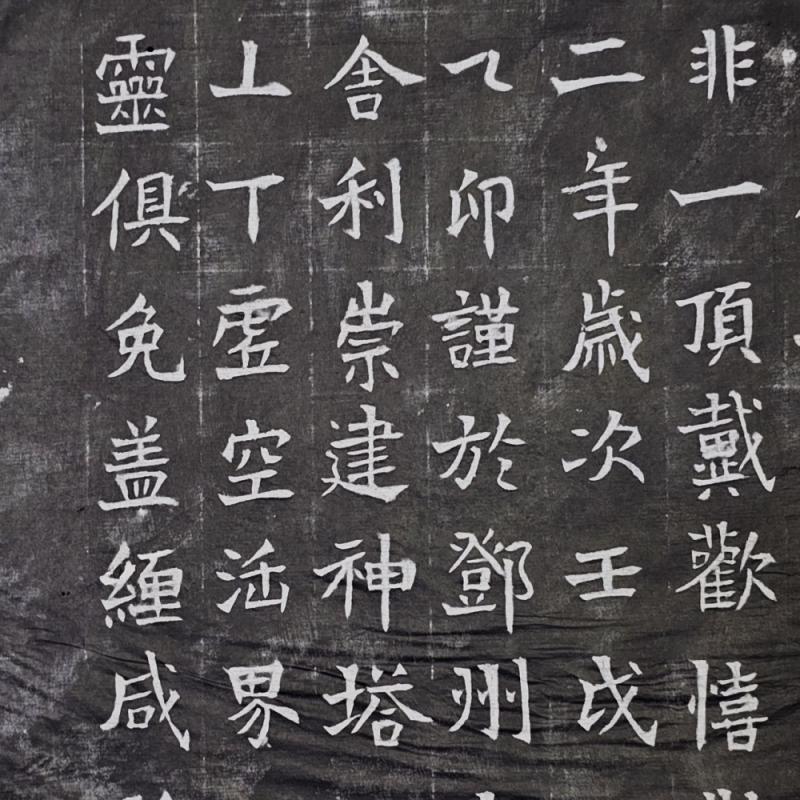 非一頂戴歡憘
二年歲次壬戌
乙卯謹於鄧州
舍利崇建神塔
丄丅虛空法界
靈俱免盖纏咸